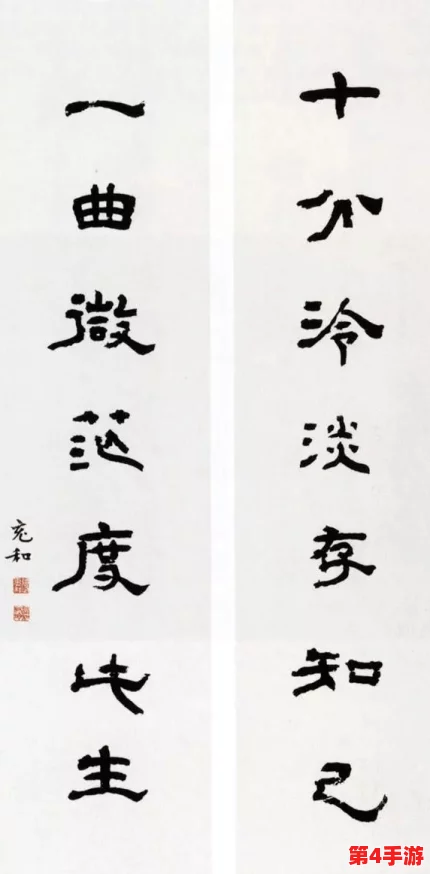 十分冷淡存知己
一曲微茫度此生
充和
第4手游